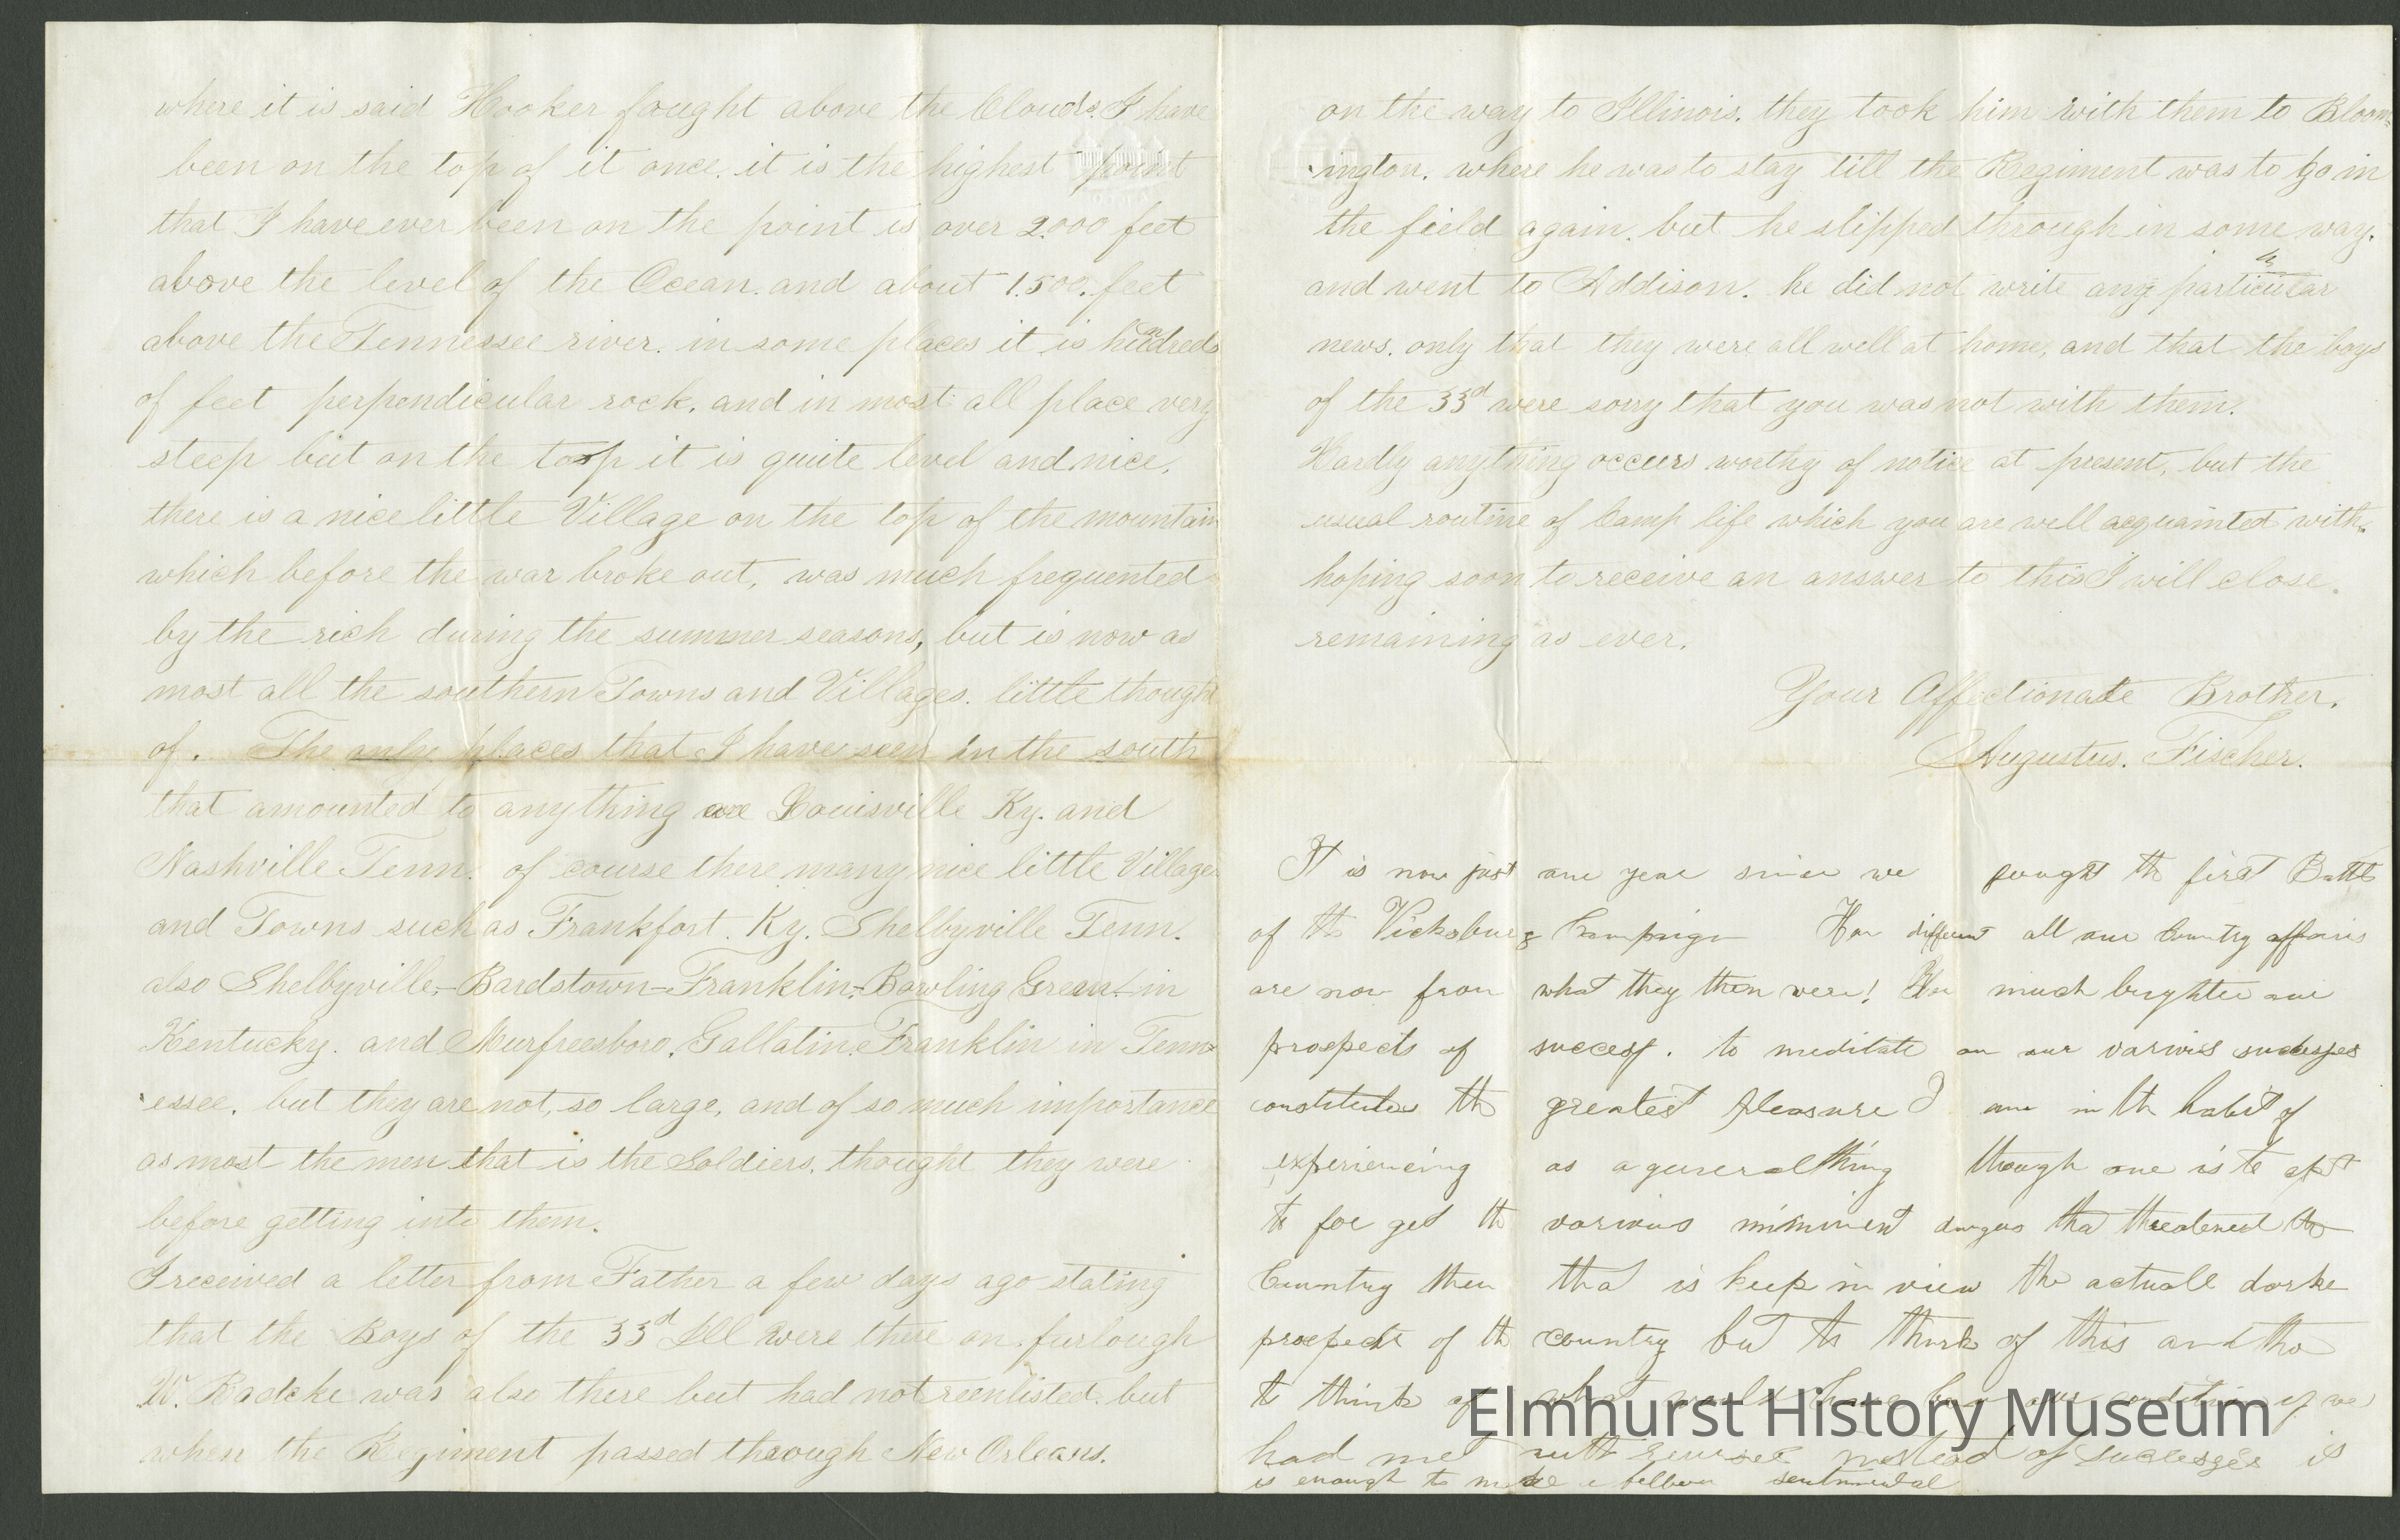 where it is said Hooker fought above the Clouds. I have
been on the top of it once. it is the highest point
that I have ever been on the point is over 2.000 feet
above the level of the Ocean. and about 1.500. feet
above the Tennessee river. in some places it is hundreds
of feet perpendicular rock. and in most all place very
steep but on the top it is quite level and nice.
there is a nice little Village on the top of the mountain
which before the war broke out, was much frequented
by the rich during the summer seasons, but is now as
most all the southern Towns and Villages. little thought
of. The only places that I have seen in the south
that amounted to anything are Louisville Ky. and
Nashville Tenn. of course there many nice little Villages
and Towns such as Frankfort. Ky. Shelbyville Tenn.
also Shelbyville,- Bardstown- Franklin,- Bowling Green. in
Kentucky. and Murfreesboro. Gallatin. Franklin in Tenn-
essee. but they are not, so large, and of so much importance
as most the men that is the Soldiers, thought they were
before getting into them.
I received a letter from Father a few days ago stating
that the Boys of the 33d Ill were there on furlough
W. Radcke was also there but had not reenlisted. but
when the Regiment passed through New Orleans.
on the way to Illinois. they took him with them to Bloom-
ington. where he was to stay till the Regiment was to go in
the field again. but he slipped through in some way.
and went to Addison. he did not write any particular
news. only that they were all well at home, and that the boys
of the 33d were sorry that you was not with them.
Hardly anything occurs worthy of notice at present, but the
usual routine of Camp life which you are well acquainted with.
hoping soon to receive an answer to this I will close.
remaining as ever.
Your Affectionate Brother.
Augustus. Fischer.
It is now just one year since we fought the first Battle
of the Vicksburg Campaign How different all our Country affairs
are now from what they then were! How much brighter our
prospects of success. to meditate on our various successes
constitutes the greatest pleasure I am in the habit of
experiencing as a general thing though one is to apt
to for get the various imminent dangers tha threatened the
Country then that is keep in view the actuall darke
prospects of the country but to think of this and tho
to think of what would have been our condition if we
had met with reverses instead of successes is
is enough to make a fellow sentimental
Elmhurst History Museum